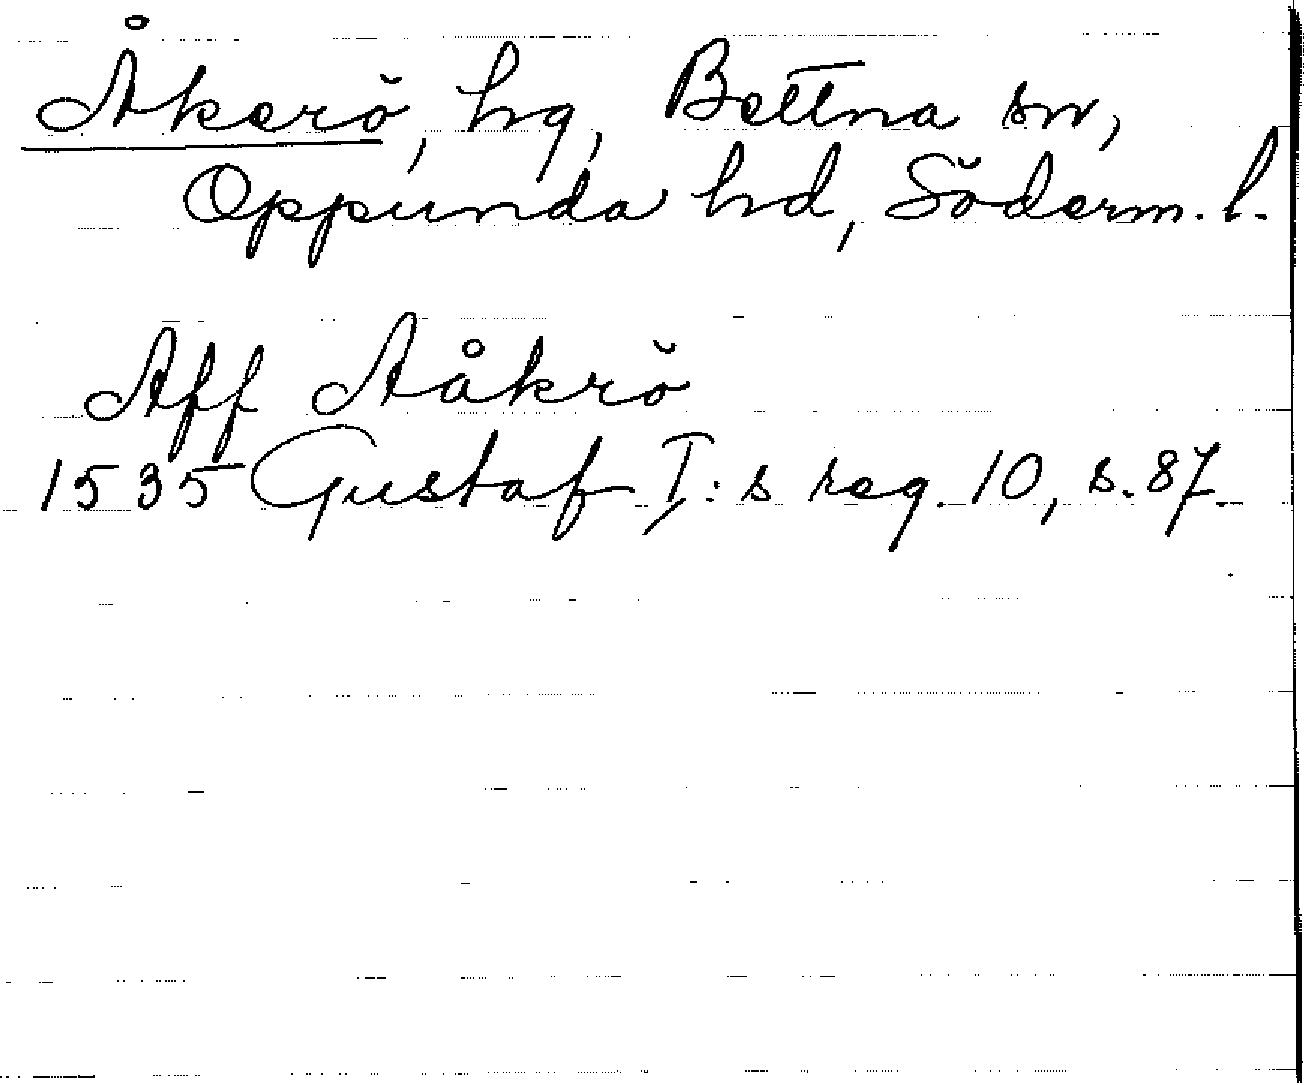 Åkerö, hg, Bettna sn,
Oppunda hd, Söderm. l.
Aff Aåkrö
1535 Gustaf I:s reg. 10, s. 87.